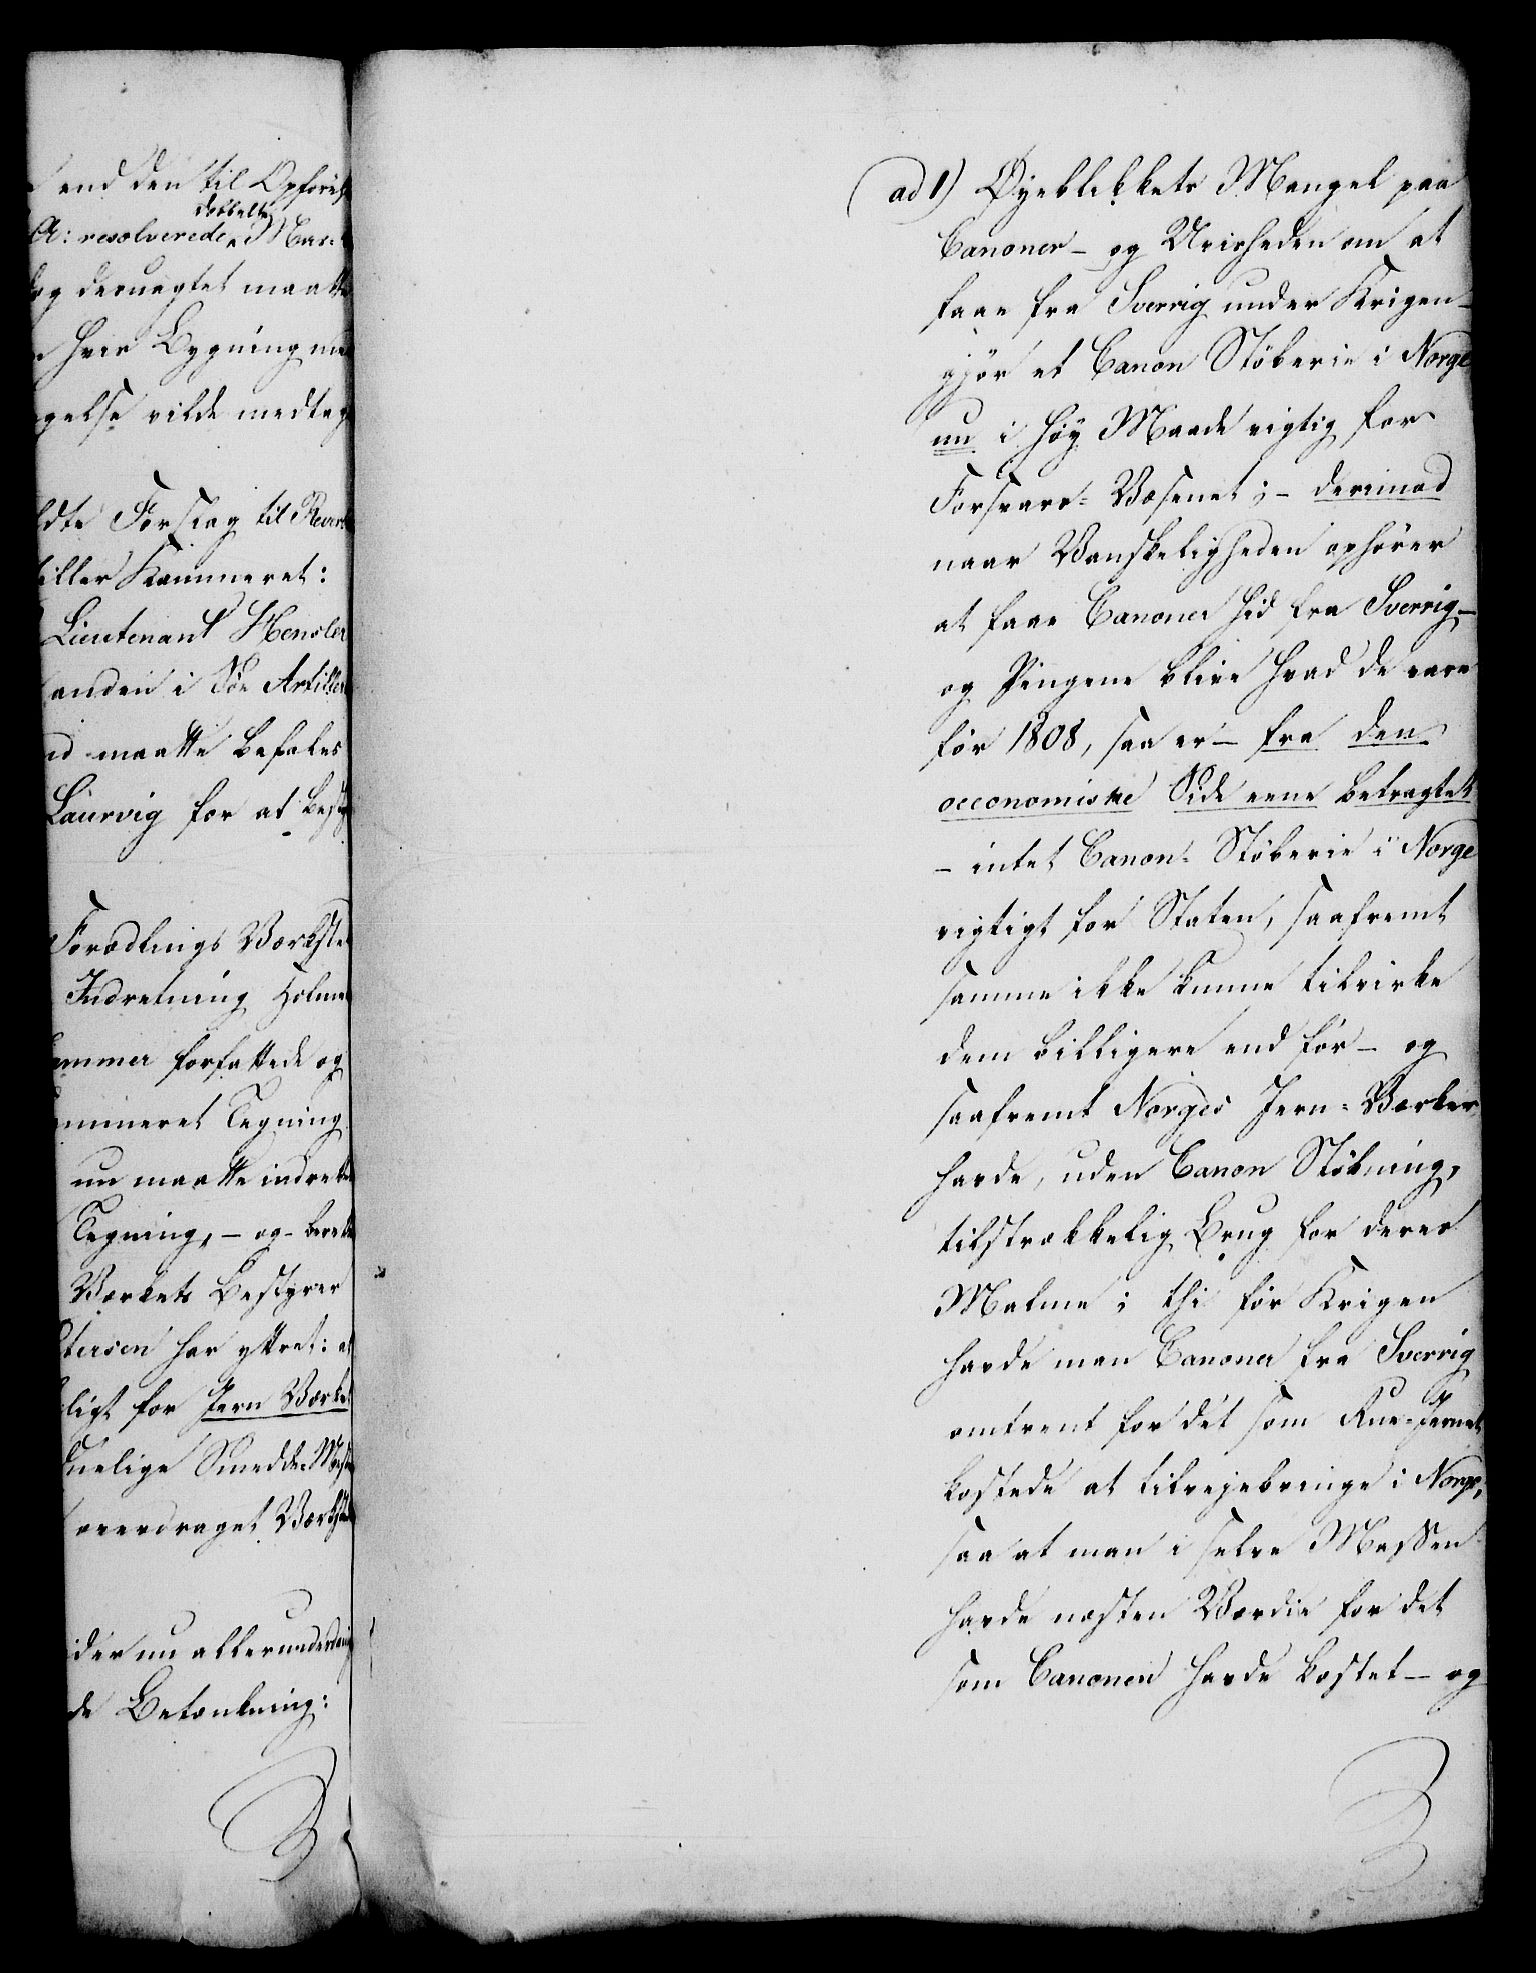 end den til Opförel
dobbelte
A: resolverede Mas
og deruagtet maatte
hvis Bygning me
gelse vilde medtag
ldte Forslag til Revi
tiller Kammeret:
Lieutenant Hensler
anden i Söe Artille
maatte befales
Laurvig for at besty
Forædlings Værkste
Indretning Holme
ammer forfattede og
mineret Tegning
nu maatte indrette
Tegning, - og berette
Værkets Bestyrer
tersen har yttret: at
ligt for Jern Værke
duelige Smedde-Me
overdraget Værkste
ider nu allerunderdani
de Betænkning:
ad 1) Öyeblikkets Mangel paa
Canoner - og Uvisheden om at
faae fra Sverrig under Krigen -
gjör et Canon Stöberie i Norge
nu i höy Maade vigtig for
Forsvars-Væsenet; - derimod
naar Vanskeligheden ophörer
at faae Canoner hid fra Sverrig, -
og Pengene blive hvad de vare
för 1808, saa er - fra den
oeconomiske Side eene betragtet
- intet Canon-Stöberie i Norge
vigtigt for Staten, saafremt
samme ikke kunne tilvirke
dem billigere end för - og
saafremt Norges Jern-Værker
havde, uden Canon Stöbning,
tilstrækkelig Brug for deres
Malme; thi för Krigen
havde man Canoner fra Sverrig
omtrent for det som Rue-Jernet
kostede at tilvejebringe i Norge,
saa at man i selve Massen
havde næsten Værdie for det
som Canonen havde kostet - og